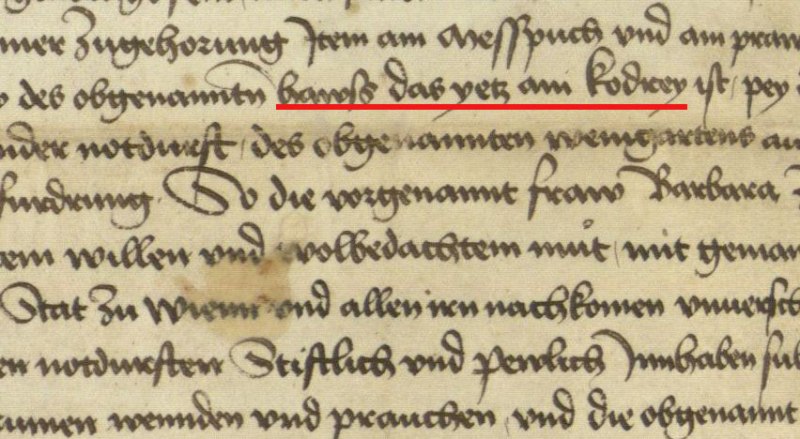 mer Zugehorung Item am Messpuch vnd am praw
des obgenanntn hawss das yetz ain kodrey ist, pey
nder notdurfft, des obgenannten weingartens au
furdrung. So die vorgenannt fraw Barbara
em willen vnd wolbedachtem mut, mit geman
Stat zu Wienn vnd allen irn nachkomen vnuersch
en notdurfften Stifftlich vnd pewlich Innhaben sul
rumen wennden vnd prauchen, vnd die obgenannt